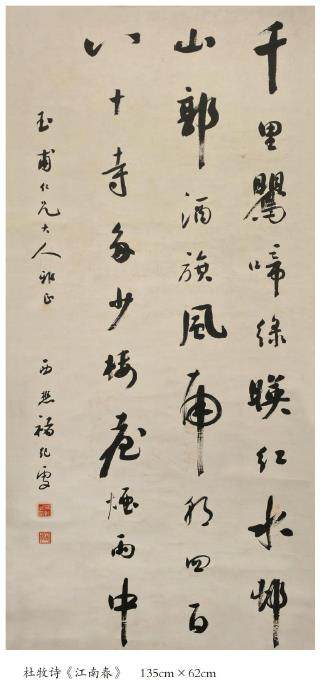 千里鸎啼綠暎紅水邨
山郭酒旗風南朝四百
八十寺多少樓臺煙雨中
玉甫仁兄大人雅正
西
杜牧诗《江南春》 135cm×62cm